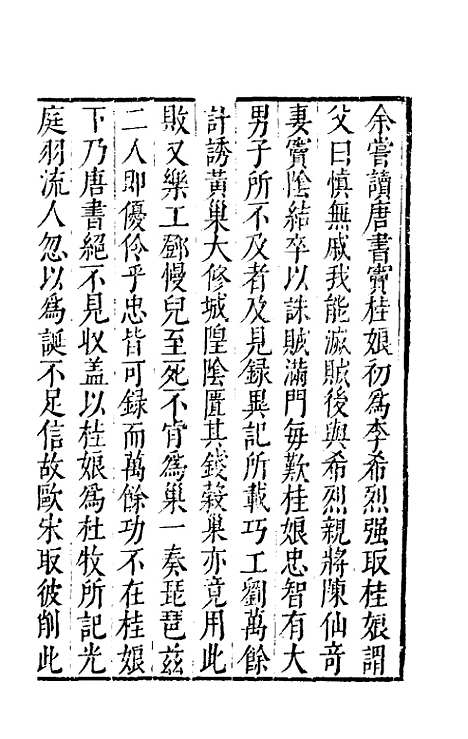 余嘗讀唐書竇桂娘初爲李希烈强取桂娘謂
父曰慎無戚我能滅賊後與希烈親將陳仙奇
妻竇陰結卒以誅賊滿門每歎桂娘忠智有大
男子所不及者及見録異記所載巧工劉萬餘
計誘黃巢大修城隍陰匱其錢穀巢亦竟用此
敗又樂工鄧慢兒至死不肯爲巢一奏琵琶兹
二人即優伶乎忠皆可録而萬餘功不在桂娘
下乃唐書絕不見収盖以桂娘爲杜牧所記光
庭羽流人忽以爲誕不足信故歐宋取彼削此